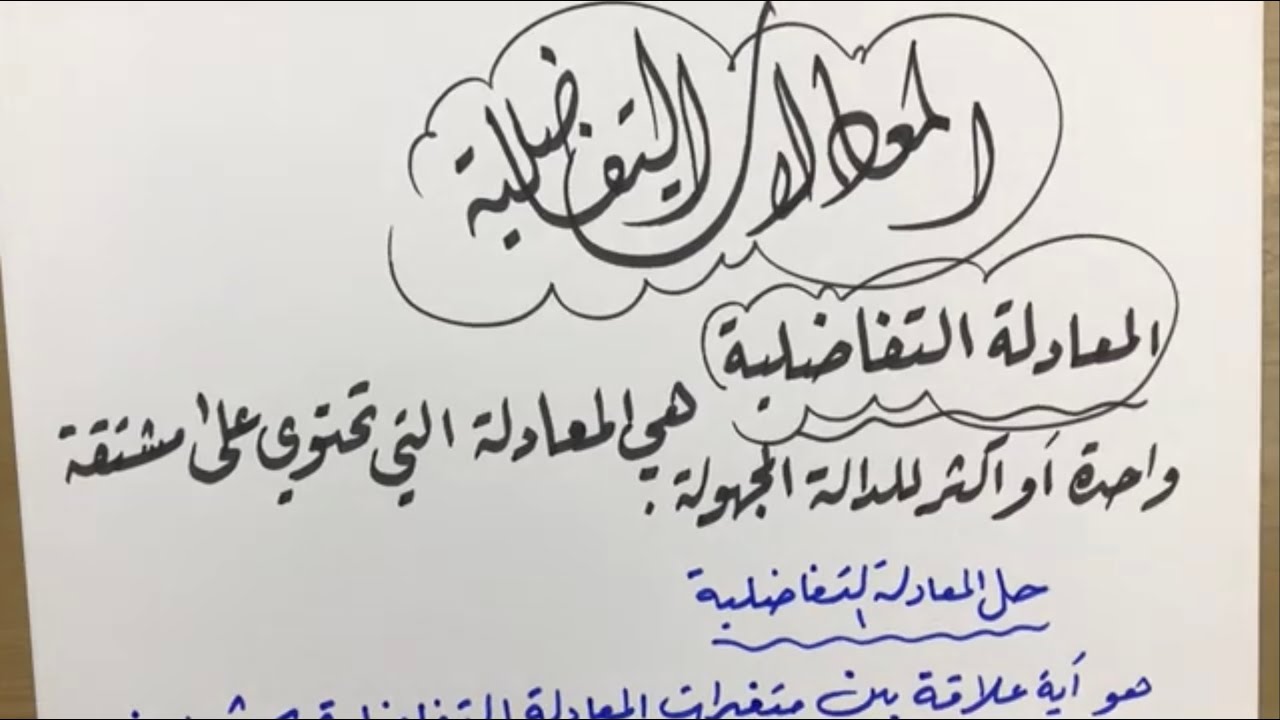 المعادلات التفاضلية
المعادلة التفاضلية
هي المعادلة التي تحتوي على مشتقة
واحدة أو أكثر للدالة المجهولة .
حل المعادلة التفاضلية
هو أية علاقة بين متغيرات المعادلة التفاضلية